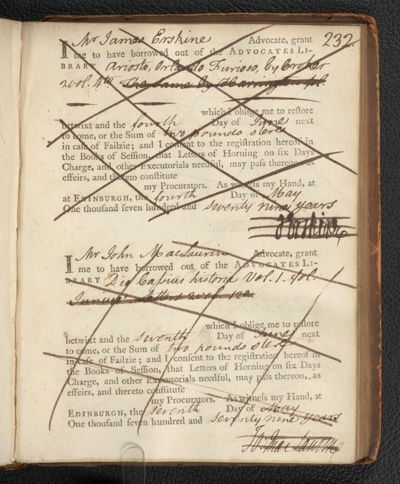 232
I Mr James Erskine Advocate, grant
me to have borrowed out of the ADVOCATES LI-
BRARY Ariosto, Orlando Furioso, by Croker
2 vol. 4to the same by Harrington fol.
which I oblige me to restore
betwixt and the fourth Day of June next
to come, or the Sum of two pounds sters
in case of Failzie; and I consent to the registration hereof in
the Books of Session, that Letters of Horning on six Days
Charge, and other Executorials needful, may pass thereon, as
effeirs, and thereto constitute
my Procurators. As witness my Hand, at
at EDINBURGH, the fourth Day of May
One thousand seven hundred and seventy nine years
Erskine
I Mr John MacLaurin Advocate, grant
me to have borrowed out of the ADVOCATES LI-
BRARY Dio Cassius historia Vol. 1. fol.
Letters 2 vol. 12o
which I oblige me to restore
betwixt and the seventh Day of June next
to come, or the Sum of two pounds sters
in case of Failzie; and I consent to the registration hereof in
the Books of Session, that Letters of Horning on six Days
Charge, and other Executorials needful, may pass thereon, as
effeirs, and thereto constitute
my Procurators. As witness my Hand, at
EDINBURGH, the seventh Day of May
One thousand seven hundred and seventy nine years
Jo MacLaurin